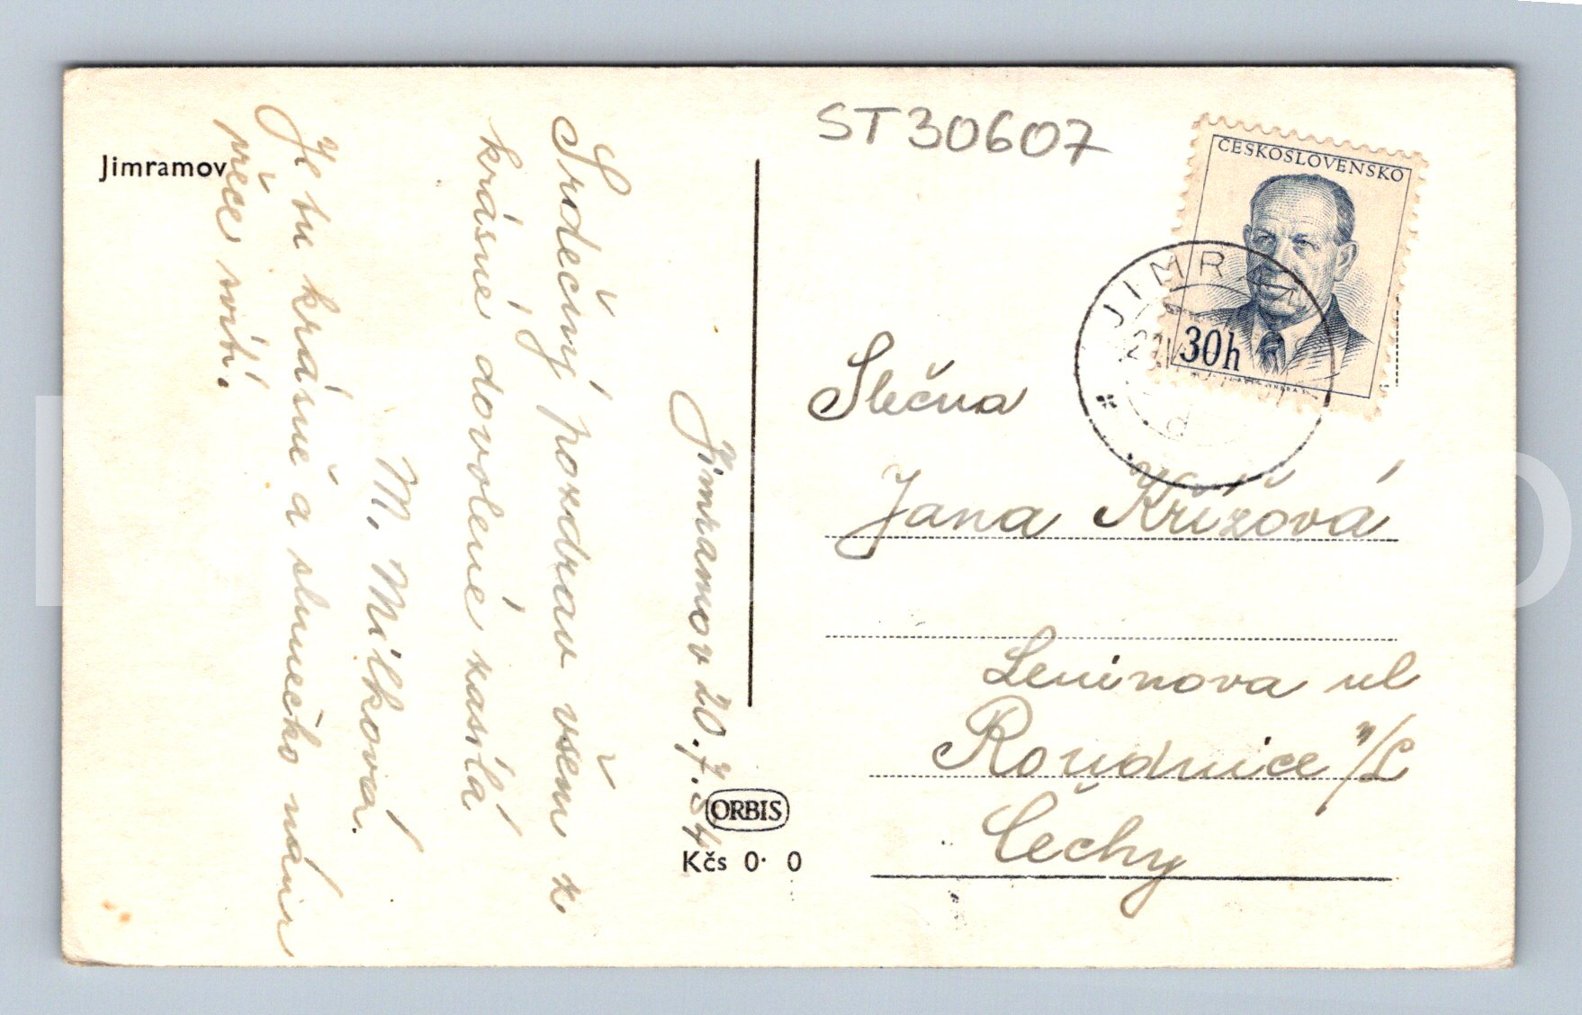 Jimramov
ST30607
ČESKOSLOVENSKO
30h
JIMRA
d
Jimramov 20.7.54
Srdečný pozdrav všem z
krásné dovolené zasílá
M. Milková.
Je tu krásně a slunečko nám
svítí.
Slečna
Jana Křížová
Leninova ul
Roudnice n/L
Čechy
ORBIS
Kčs 0· 0